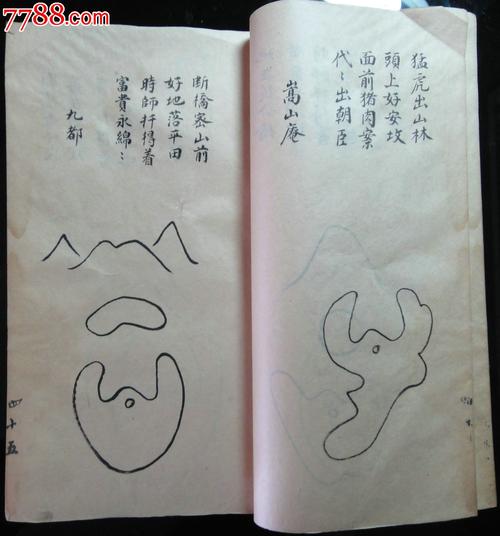 7788.com
猛虎出山林
頭上好安坟
面前猪肉案
代〻出朝臣
嵩山庵
断橋寨山前
好地落平田
時師扞得着
富貴永綿〻
九都
四十五